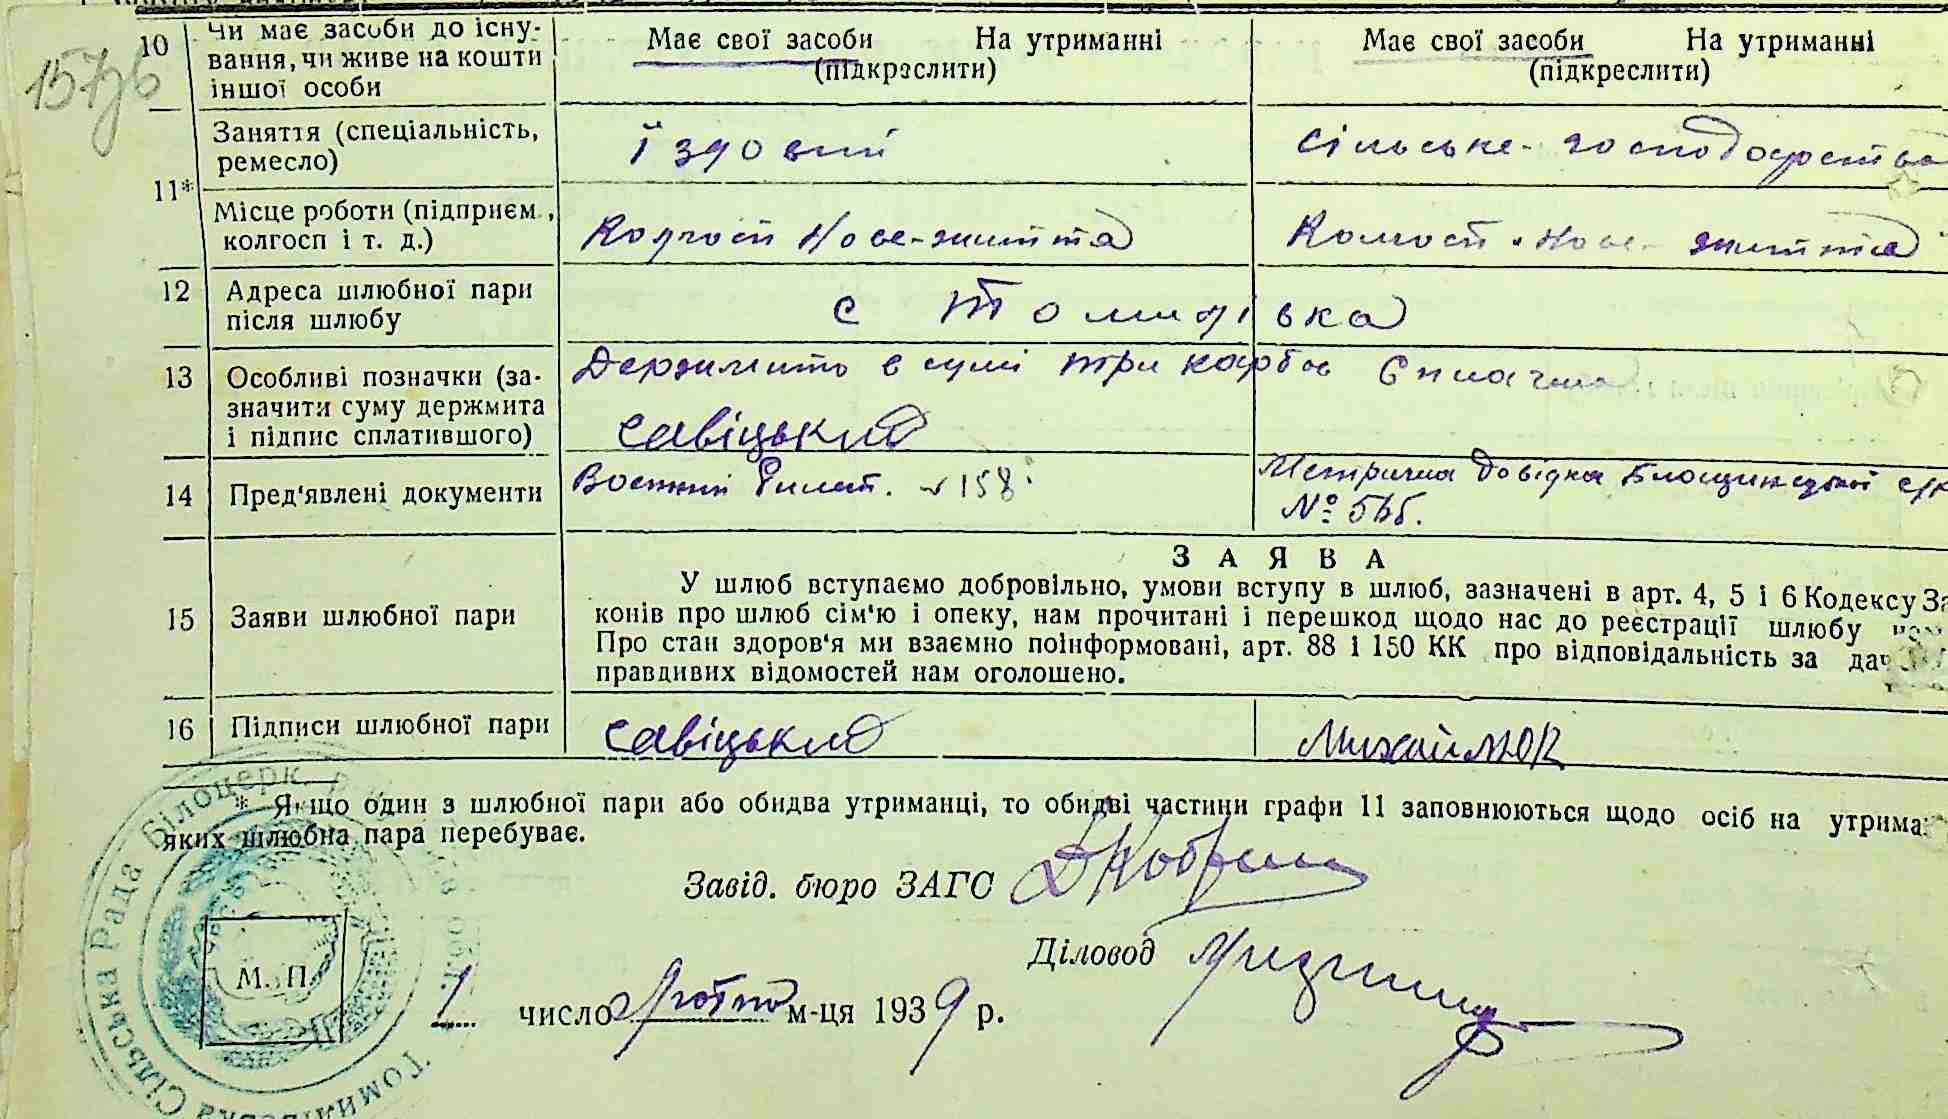 157зв
10 Чи має засоби до існу-
вання, чи живе на кошти
іншої особи
Має свої засоби На утриманні
(підкреслити)
Має свої засоби На утриманні
(підкреслити)
11* Заняття (спеціальність,
ремесло)
їздовий
сільське-господарство
Місце роботи (підприєм.,
колгосп і т. д.)
Колгосп Нове-життя
Колгосп Нове-життя
12 Адреса шлюбної пари
після шлюбу
с Томилівка
13 Особливі позначки (за-
значити суму держмита
і підпис сплатившого)
Держмито в сумі три карбов Сплачено
Савіцький
14 Пред'явлені документи
Воєнний билет. 158
Метрична довідка Блощинецької с/р
№ 566.
15 Заяви шлюбної пари
ЗАЯВА
У шлюб вступаємо добровільно, умови вступу в шлюб, зазначені в арт. 4, 5 і 6 Кодексу За
конів про шлюб сім'ю і опеку, нам прочитані і перешкод щодо нас до реєстрації шлюбу
Про стан здоров'я ми взаємно поінформовані, арт. 88 і 150 КК про відповідальність за дач
правдивих відомостей нам оголошено.
16 Підписи шлюбної пари
Савіцький
Михайлюк
* Якщо один з шлюбної пари або обидва утриманці, то обидві частини графи 11 заповнюються щодо осіб на утрима
яких шлюбна пара перебуває.
Завід. бюро ЗАГС
Діловод
М. П.
1 число лютого м-ця 1939 р.
Томилівська Сільська Рада Білоцерк.